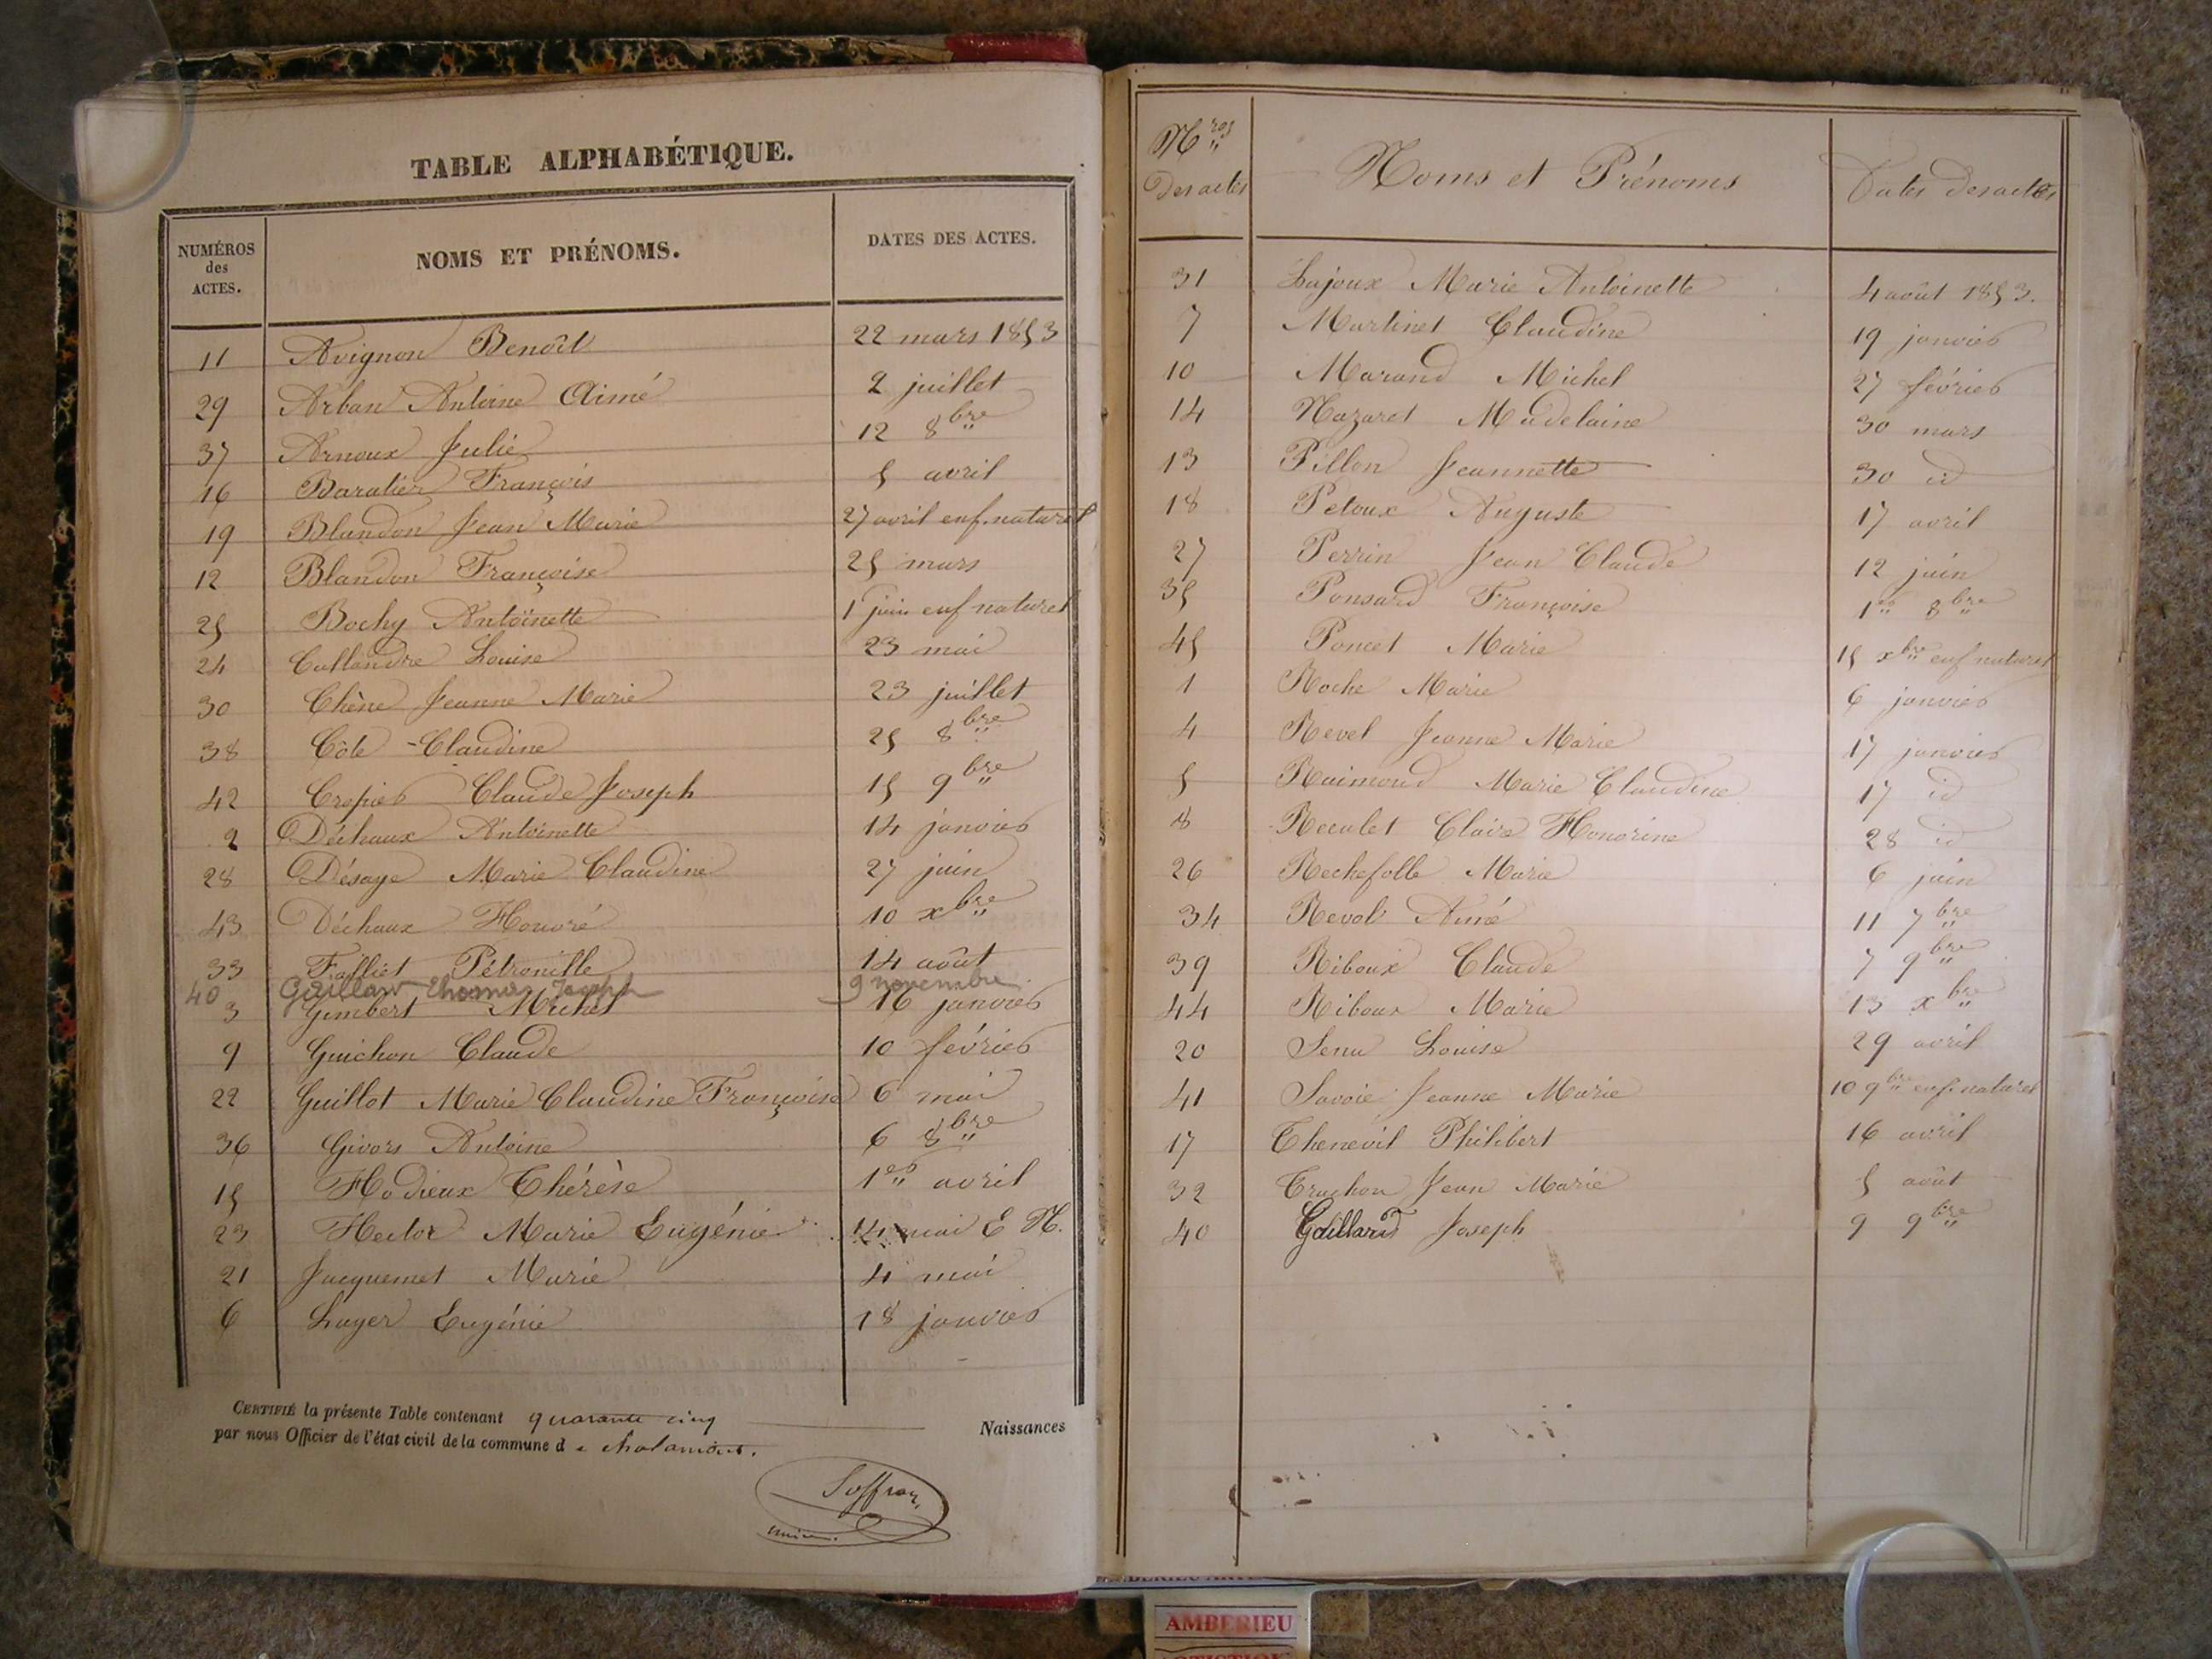 TABLE ALPHABÉTIQUE.
NUMÉROS des ACTES. NOMS ET PRÉNOMS. DATES DES ACTES.
11 Avignon Benoît 22 mars 1853
29 Arban Antoine Aimé 2 juillet
37 Arnoux Julie 12 8bre
16 Baratier François 5 avril
19 Blandon Jean Marie 27 avril enf. naturel
12 Blandon Françoise 25 mars
25 Bochy Antoinette 1 juin enf naturel
24 Callandre Louise 23 mai
30 Chêne Jeanne Marie 23 juillet
38 Côte Claudine 25 8bre
42 Crepier Claude Joseph 15 9bre
2 Déchaux Antoinette 14 janvier
28 Désaye Marie Claudine 27 juin
43 Déchaux Honoré 10 xbre
33 Failliet Pétronille 14 août
40 Gaillard Thomas Joseph 9 novembre
3 Gimbert Michel 16 janvier
9 Guichon Claude 10 février
22 Guillot Marie Claudine Françoise 6 mai
36 Givors Antoine 6 8bre
15 Hodieux Thérèse 1er avril
23 Hector Marie Eugénie 14 mai E N.
21 Jacquemet Marie 4 mai
6 Luyer Eugénie 18 janvier
CERTIFIÉ la présente Table contenant quarante cinq Naissances
par nous Officier de l'état civil de la commune de chalamont.
Nros des actes Noms et Prénoms Dates des actes
31 Lajoux Marie Antoinette 4 août 1853.
7 Martinet Claudine 19 janvier
10 Marand Michel 27 février
14 Nazaret Madelaine 30 mars
13 Pillon Jeannette 30 id
18 Petoux Auguste 17 avril
27 Perrin Jean Claude 12 juin
35 Ponsard Françoise 1er 8bre
45 Poncet Marie 15 xbre enf naturel
1 Roche Marie 6 janvier
4 Revel Jeanne Marie 17 janvier
5 Raimond Marie Claudine 17 id
8 Reculet Claire Honorine 28 id
26 Rechefolle Marie 6 juin
34 Revol Aimé 11 7bre
39 Riboux Claude 7 9bre
44 Riboux Marie 13 xbre
20 Senu Louise 29 avril
41 Savoie Jeanne Marie 10 9bre enf. naturel
17 Thenevil Philibert 16 avril
32 Truchon Jean Marie 5 août
40 Gaillard Joseph 9 9bre
AMBERIEU